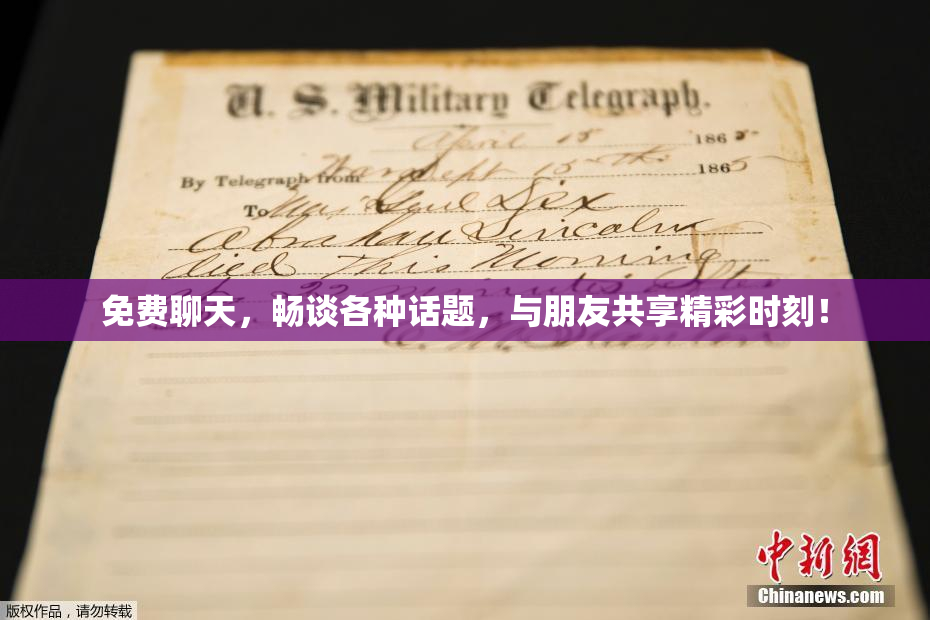 U. S. Military Telegraph.
April 15 1865
By Telegraph from War Dept 15th 1865
To Maj Genl Dix
Abraham Lincoln
died This Morning
at 22 minutes after
免费聊天，畅谈各种话题，与朋友共享精彩时刻！
E. M. Stanton
中新网
Chinanews.com
版权作品，请勿转载